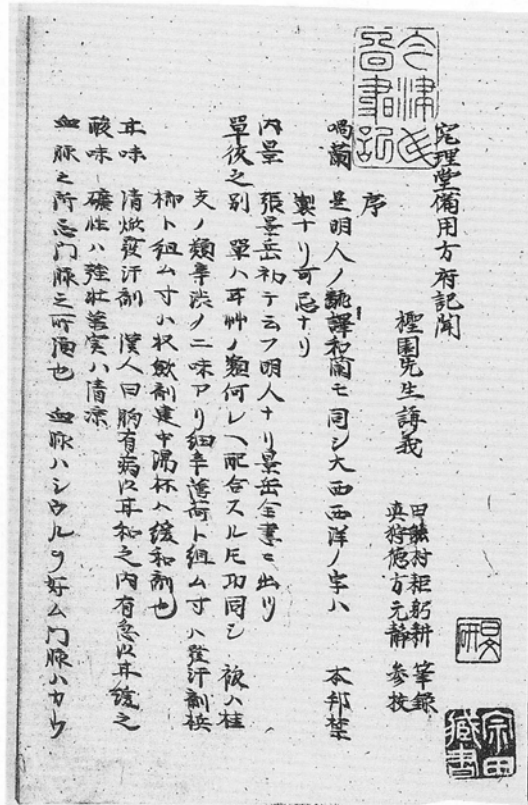 究理堂備用方府記聞
檉園先生講義
田能村柜躬耕 筆録
真狩徳方元静 参校
序
喝蘭 是明人ノ翻譯和蘭モ同シ大西西洋ノ字ハ 本邦禁
製ナリ可忌ナリ
内景 張景岳初テ云フ明人ナリ景岳全書ニ出ツ
單複之別 單ハ耳艸ノ類何レヘ配合スルモ功同シ 複ハ桂
支ノ類辛渋ノ二味アリ細辛薄荷ト組ム寸ハ發汗劑
ト組ム寸ハ収斂劑建中湯杯ハ緩和劑也
耳味 清 發汗劑 漢人曰胸有病以耳和之内有急以耳緩之
酸味 礦性ハ強壮 実ハ清凉
血脉之所忌門脉之所須也 血脉ハシウルヲ好ム門脉ハカウ
宗田
蔵書